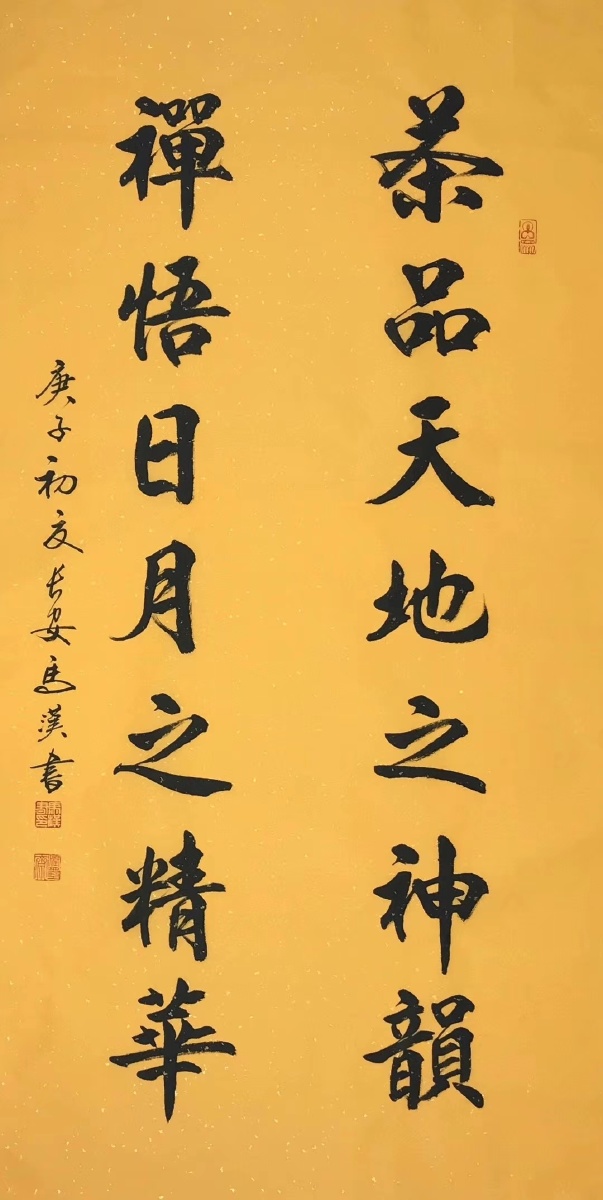 茶品天地之神韻
禪悟日月之精華
庚子初夏長安馬漢書